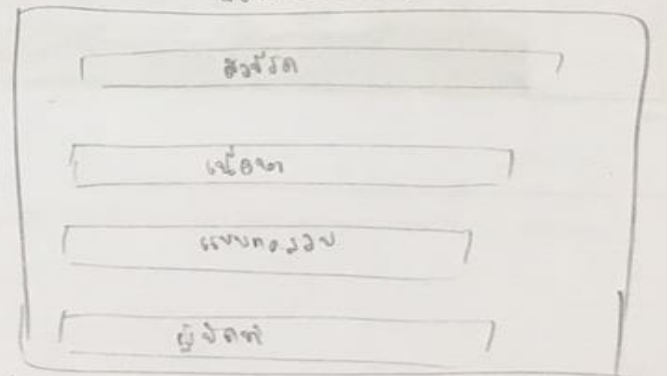 ตัวชี้วัด
เนื้อหา
แบบทดสอบ
ผู้จัดทำ